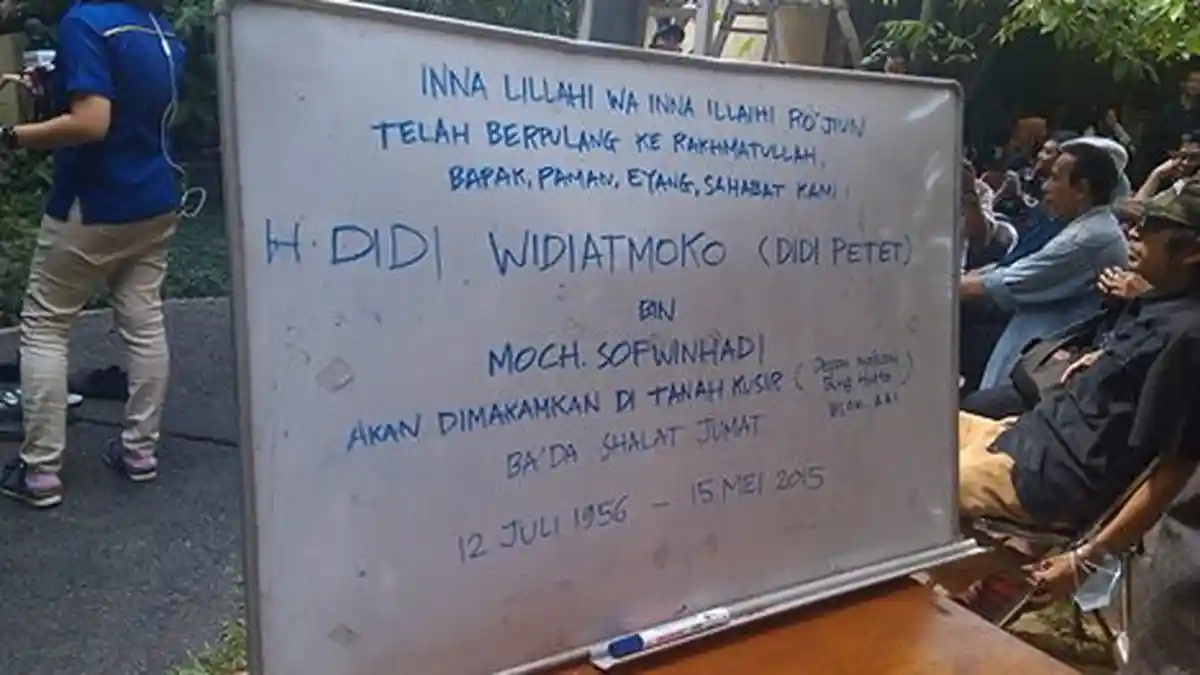 INNA LILLAHI WA INNA ILLAIHI RO'JIUN
TELAH BERPULANG KE RAKHMATULLAH,
BAPAK, PAMAN, EYANG, SAHABAT KAMI :
H. DIDI WIDIATMOKO (DIDI PETET)
BIN
MOCH. SOFWINHADI
AKAN DIMAKAMKAN DI TANAH KUSIR (Depan makam Bung Hatta
BLOK AA1)
BA'DA SHALAT JUMAT
12 JULI 1956 - 15 MEI 2015